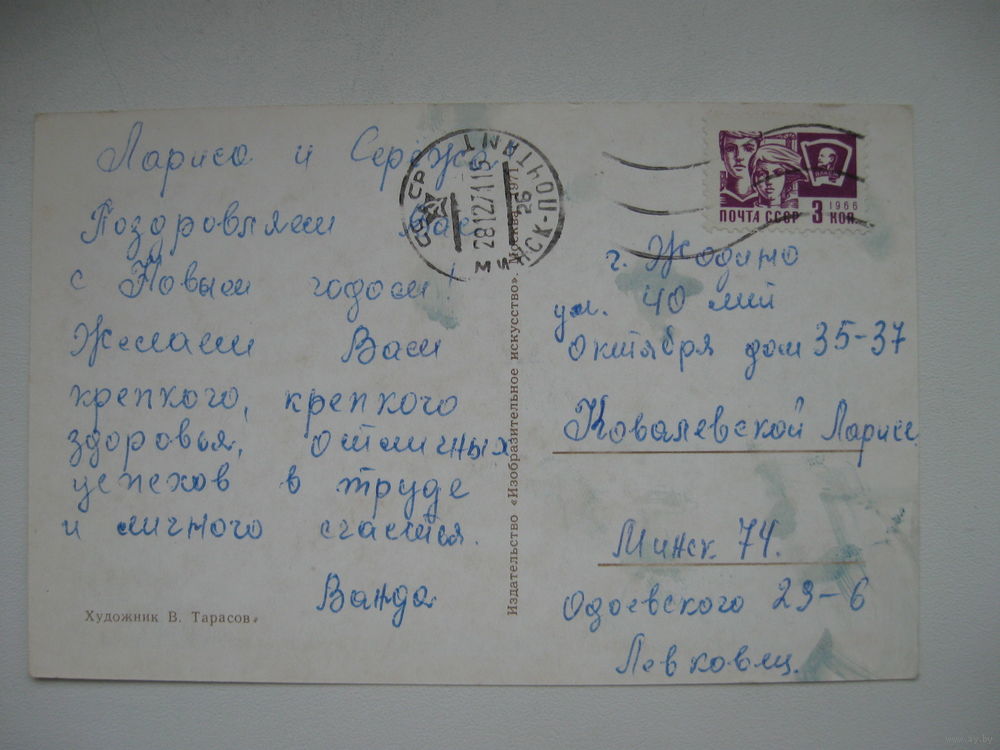 Лариса и Сережа
Поздровляем Вас
с Новым годом!
Желаем Вам
крепкого, крепкого
здоровья, отличных
успехов в труде
и личного счастья.
Ванда
Художник В. Тарасов.
Издательство «Изобразительное искусство». Москва. 1971
СССР
281271 15
МИНСК-ПОЧТАМТ
26
ВЛКСМ
1966
ПОЧТА СССР 3 КОП.
г. Жодино
ул. 40 лет
Октября дом 35-37
Ковалевской Ларисе
Минск 74.
Одоевского 29-6
Левковец.
www.ay.by